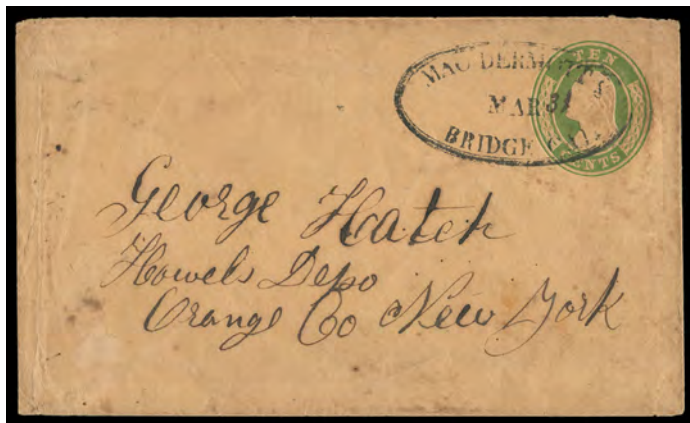 MAC DERMOTT'S
MAR 31
BRIDGE CAL.
TEN
CENTS
George Hatch
Howels Depo
Orange Co New York